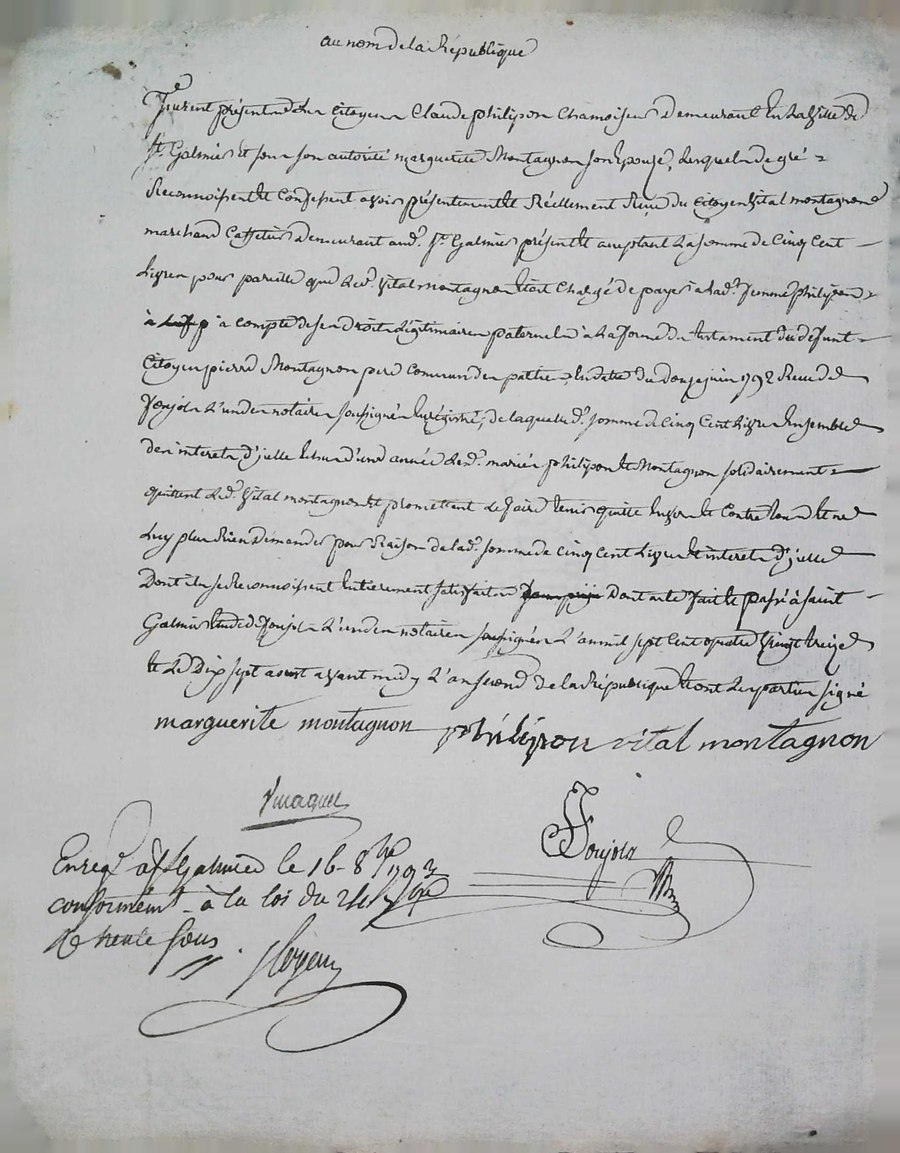 au nom de la République
furent présent en le Citoyen Claude philipon Chamoiseur Demeurant En la Ville de
St. Galmier et sous son autorité marguerite Montagnon son Epouze, Lesquels de gré
Reconnoissent et Confessent avoir présentement et Réellement Reçu du Citoyen Vital montagnon
marchand Caffetier Demeurant aud. St. Galmier présent et acceptant La somme de Cinq Cent
Livres pour pareille que Led. Vital Montagnon étoit Chargé de payer à Lad. femme philipon
à compte de ses Droits Légitimaires paternels à La forme du testament du défunt
Citoyen pierre Montagnon pere Commun des parties, En date du Douze juin 1792 Reçu
L'un des notaires soussignés Enrégistré, de laquelle d. somme de Cinq Cent Livres Ensemble
des interets d'icelle Echus d'une année Led. mariés philipon et Montagnon solidairement
quittent Led. Vital montagnon et promettent de faire tenir quitte Envers et Contre tous et ne
Luy plus Rien Demander pour Raison de lad. somme de cinq Cent Livres et interets d'icelle
Dont ils se Reconnoissent Entierement satisfaits Dont acte fait et passé à saint
Galmier Etude de Soujols L'un des notaires soussignés L'an mil sept Cent quatre Vingt treize
et Le Dix sept aoust avant midy L'an second de la République et ont Les parties signé
marguerite montagnon philipon vital montagnon
Soujols
Enreg. à St Galmier le 16 8bre 1793
conforment à la loi du
trente sous